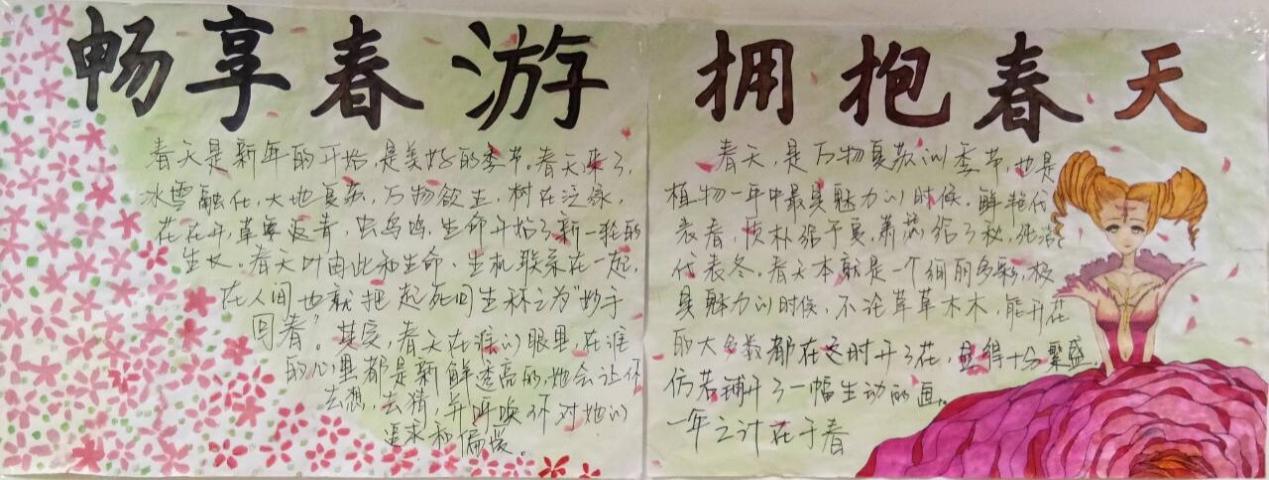 畅享春游
春天是新年的开始,是美好的季节。春天来了,
冰雪融化,大地复苏,万物欲生,树在泛绿,
花在开,草要返青,虫鸟鸣,生命开始了新一轮的
生长。春天以由此和生命、生机联系在一起,
在人间也就把起死回生称之为"妙手
回春"。其实,春天在谁的眼里,在谁
的心里都是新鲜透亮的,她会让你
去想,去猜,并呼唤你对她的
追求和偏爱。
拥抱春天
春天,是万物复苏的季节,也是
植物一年中最具魅力的时候,鲜艳代
表春,质朴给予夏,萧落给了秋,死寂
代表冬,春天本就是一个绚丽多彩,极
具魅力的时候,不论草草木木,能开花
的大多数都在这时开了花,显得十分繁盛
仿若铺开了一幅生动的画。
一年之计在于春